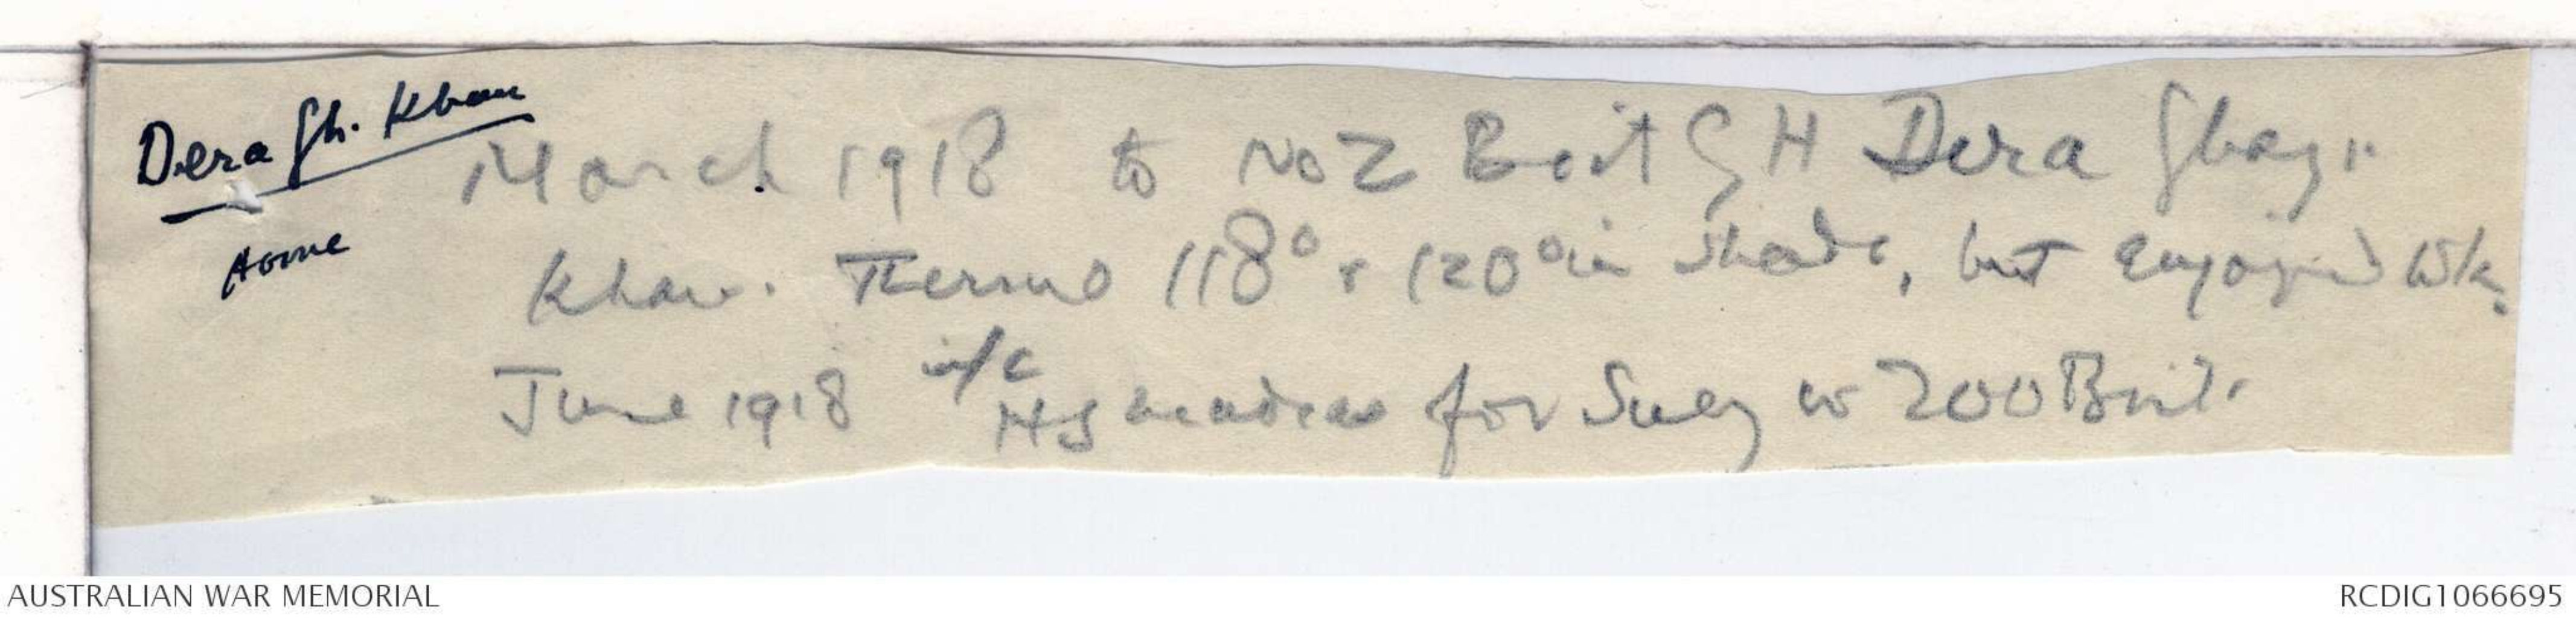 Dera Gh. Khan
Home
March 1918 to No 2 Brit G H Dera Ghazi
Khan. Thermo 118° & 120° in shade, but enjoyed wk.
June 1918 i/c
HS Madras for Suez w 200 Brit.
AUSTRALIAN WAR MEMORIAL
RCDIG1066695